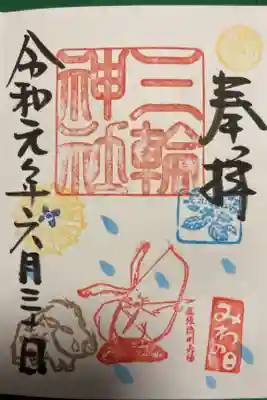 奉拝
三輪
神社
令和元年六月三十日
みわの日